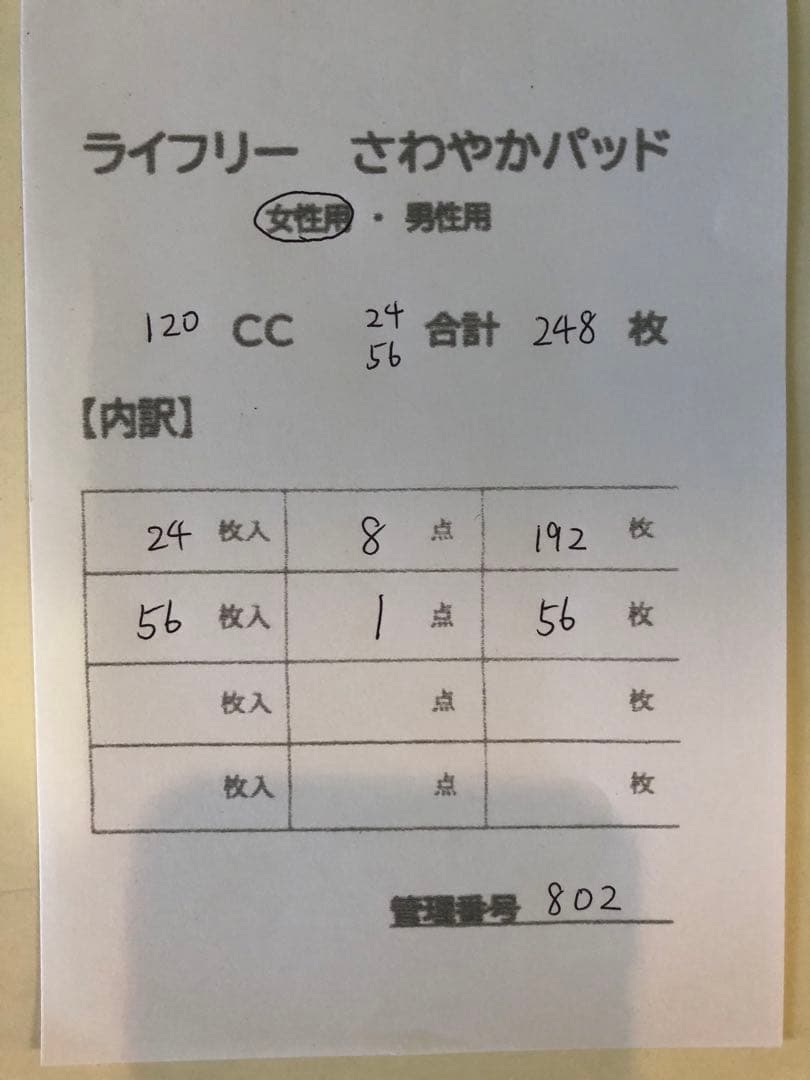 ライフリー さわやかパッド
女性用 ・ 男性用
120 CC 24 56 合計 248 枚
【内訳】
24 枚入 8 点 192 枚
56 枚入 1 点 56 枚
枚入 点 枚
枚入 点 枚
管理番号 802